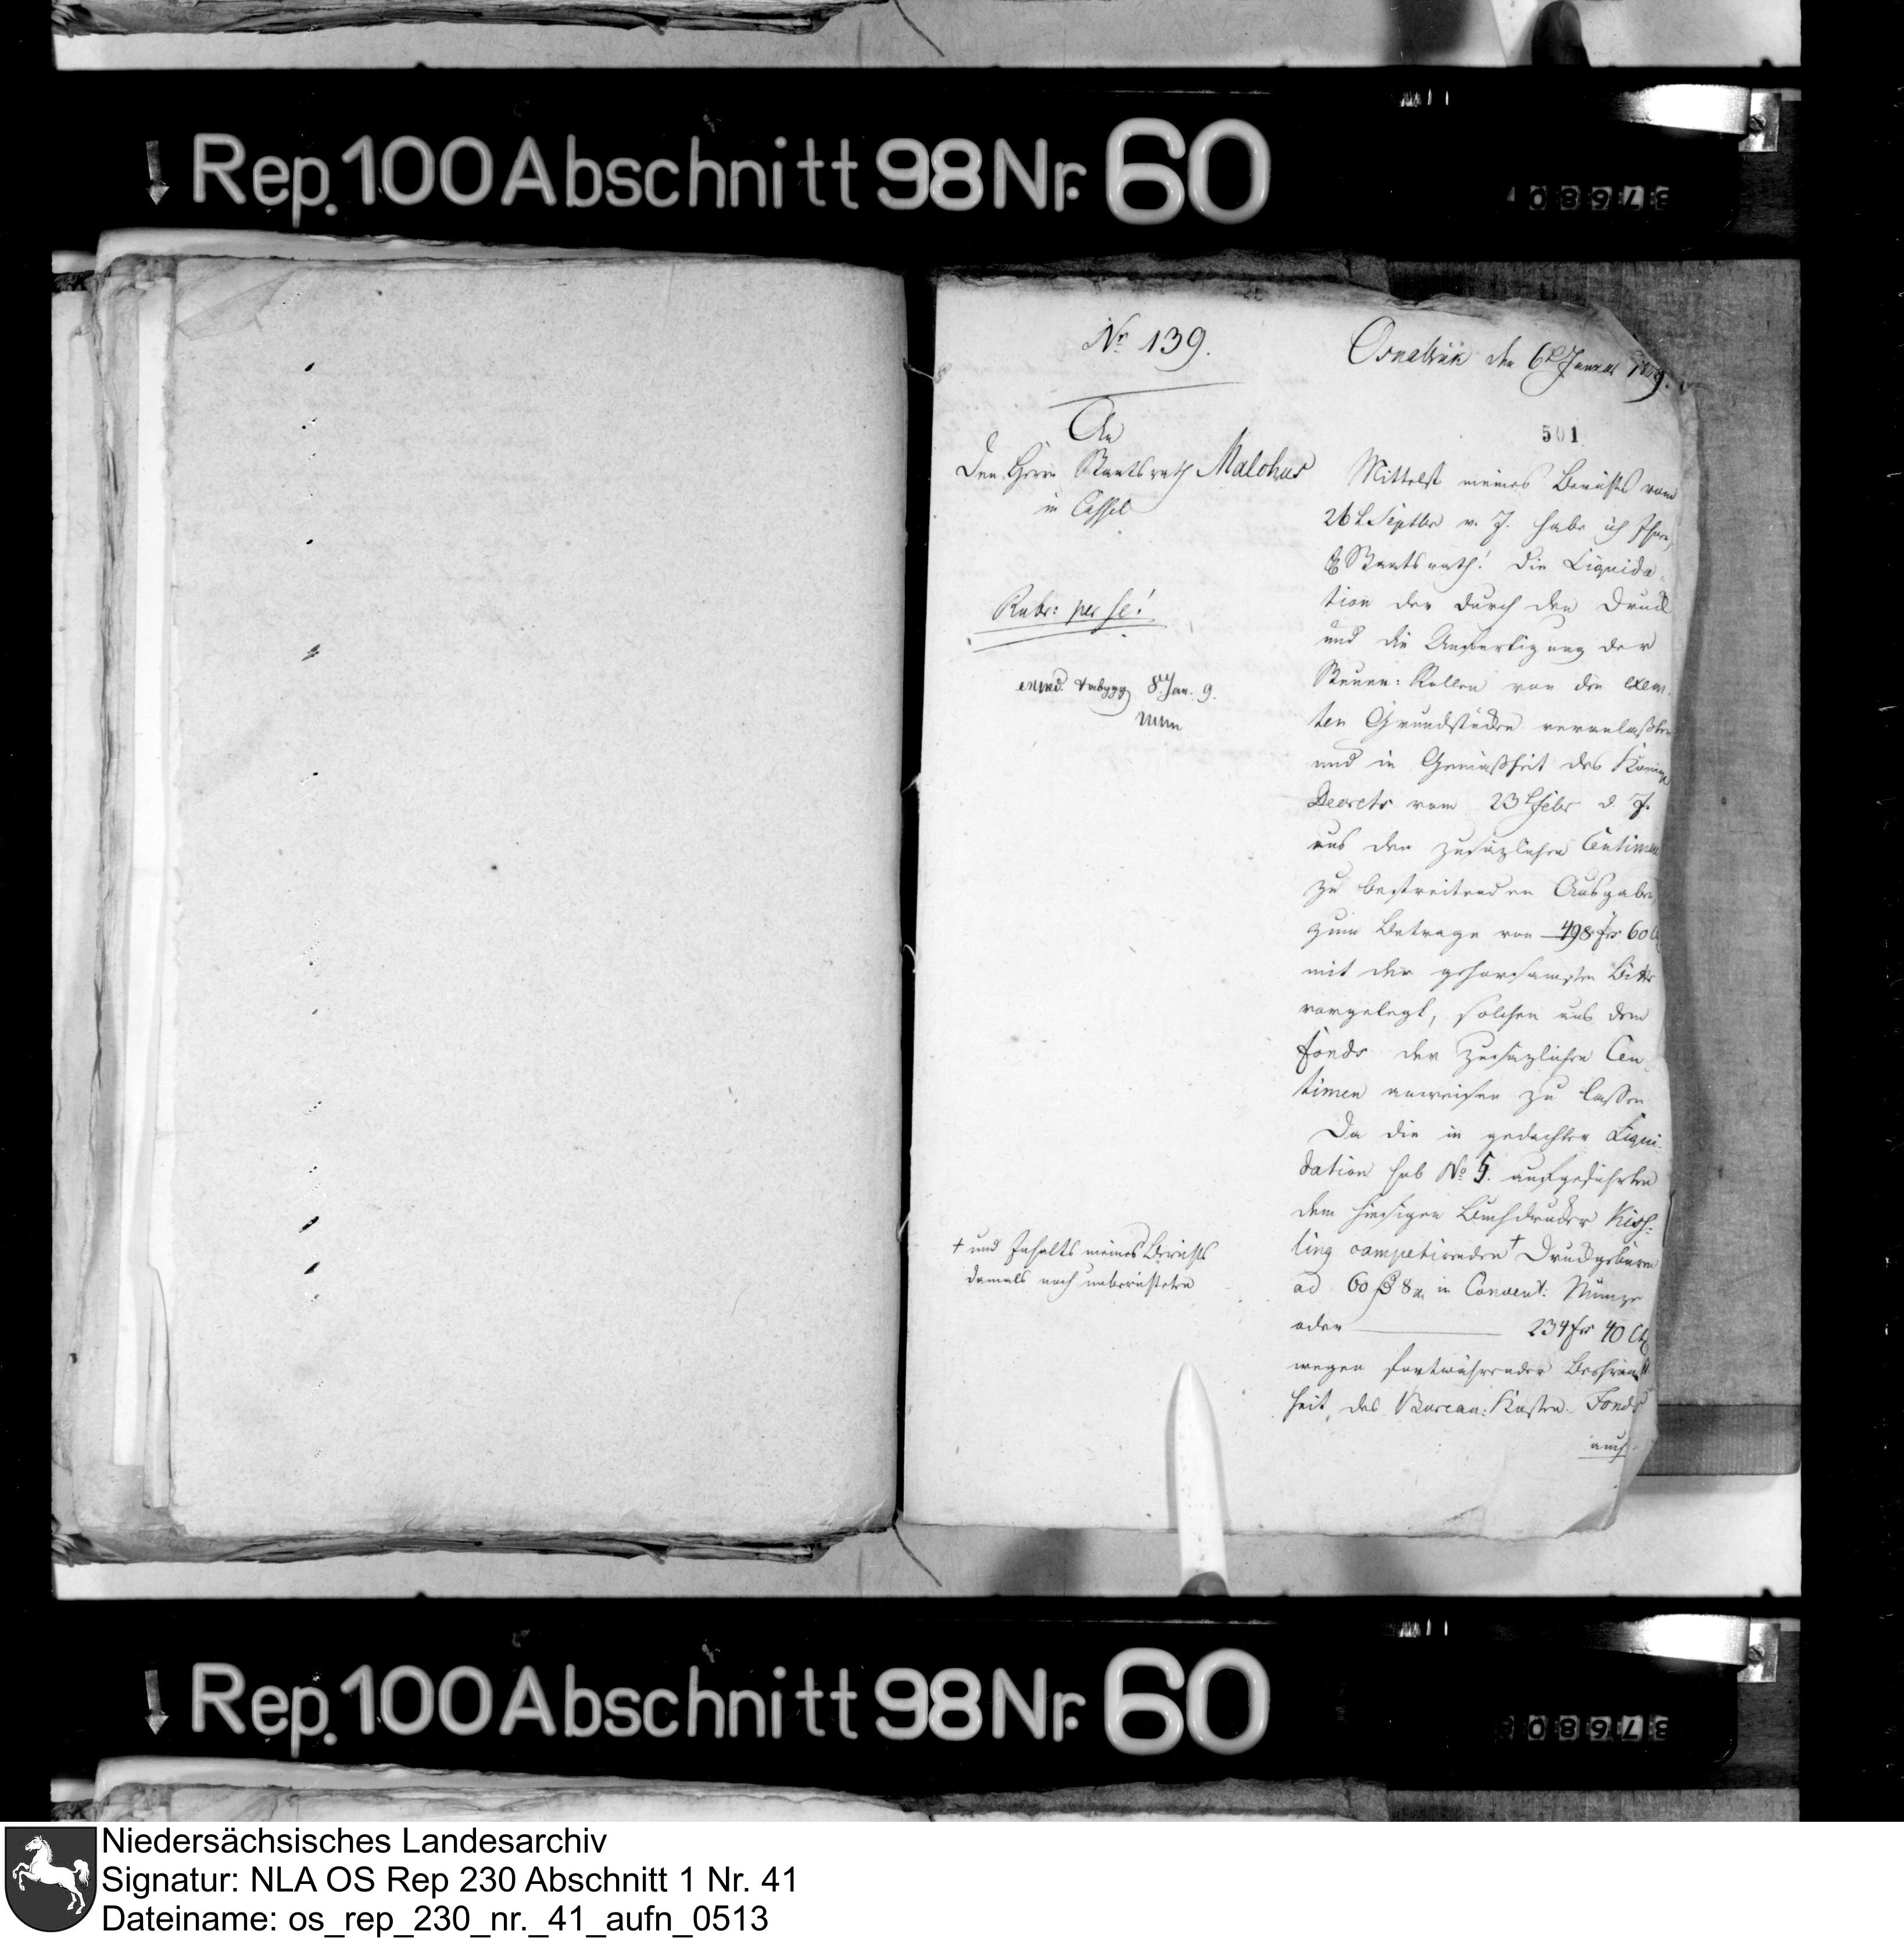 Rep. 100 Abschnitt 98 Nr. 60
37680
Nr. 139.
Osnabrük den 6t Januar 1809.
501
An
den Herrn Staatsrath Malchus
in Cassel
Rubr: per se!
8 Jan. 9.
Mittelst meines Berichts vom
26t Septbr v. J. habe ich Ihnen,
Hr Staatsrath! die Liquida-
tion der durch den Druck
und die Anfertigung der
Steuer-Rollen von den exem-
ten Grundstücken veranlaßten
und in Gemäßheit des Königl
Decrets vom 23t Febr d. J.
aus den zusäzlichen Centimen
zu bestreitenden Ausgaben
zum Betrage von 498 frs 60 Ct
mit der gehorsamsten Bitte
vorgelegt, solchen aus dem
Fonds der zusäzlichen Cen-
timen anweisen zu lassen
Da die in gedachter Liqui-
dation sub No 5. aufgeführten
dem hiesigen Buchdrucker Kiss-
ling competirenden † Druckgebüren
† und Inhalts meines Berichts
damals noch unberichteten
ad 60 8 in Convent: Münze
oder 234 frs 40 Ct
wegen fortwährender Beschränkt
heit des Bureau-Kosten-Fonds
auch
Rep. 100 Abschnitt 98 Nr. 60
37680
Niedersächsisches Landesarchiv
Signatur: NLA OS Rep 230 Abschnitt 1 Nr. 41
Dateiname: os_rep_230_nr._41_aufn_0513